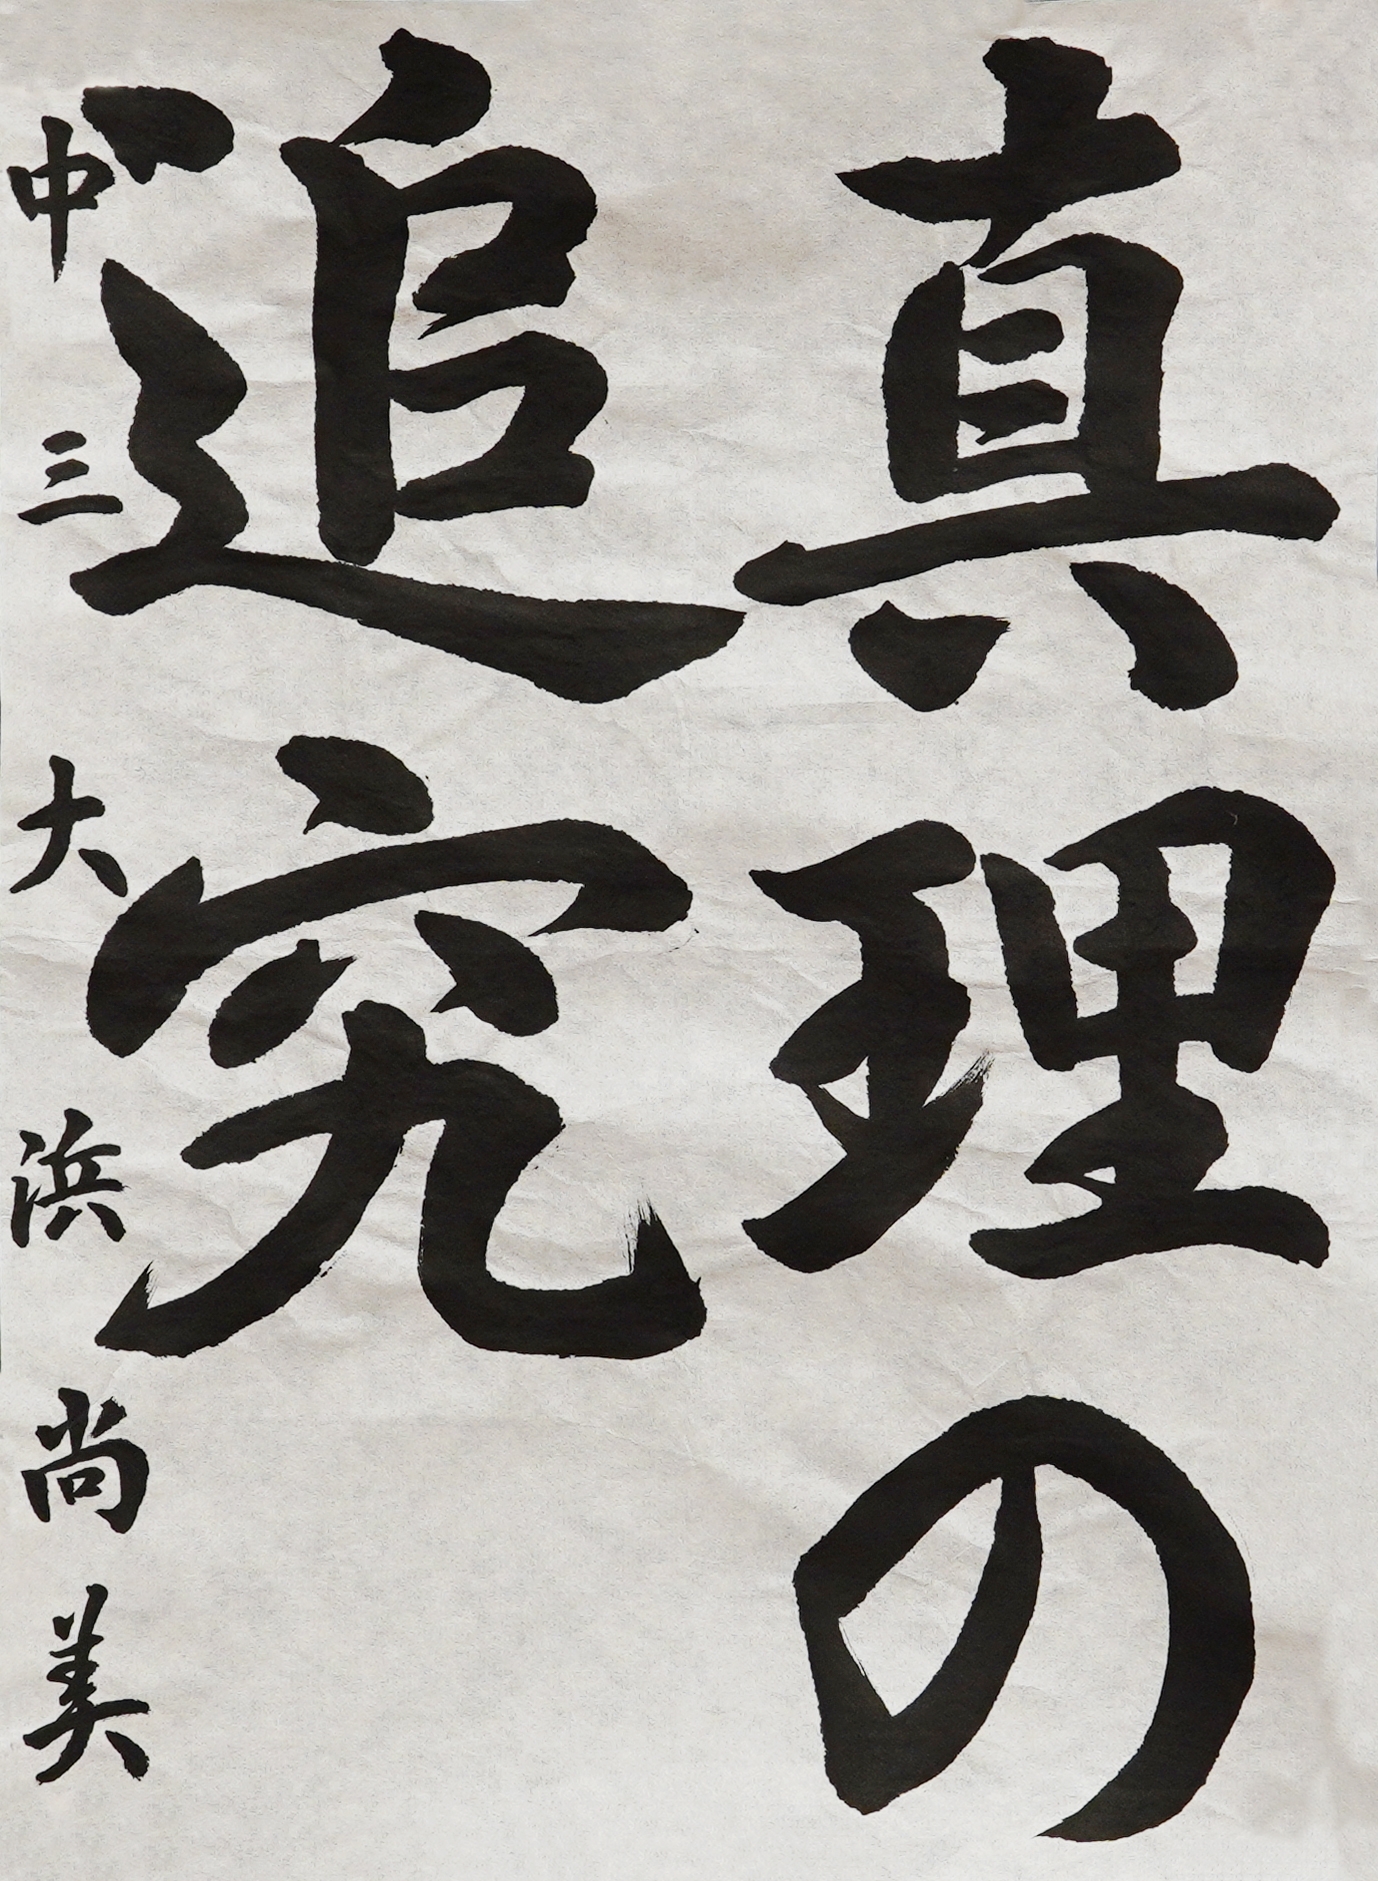 真理の
追究
中三 大浜尚美